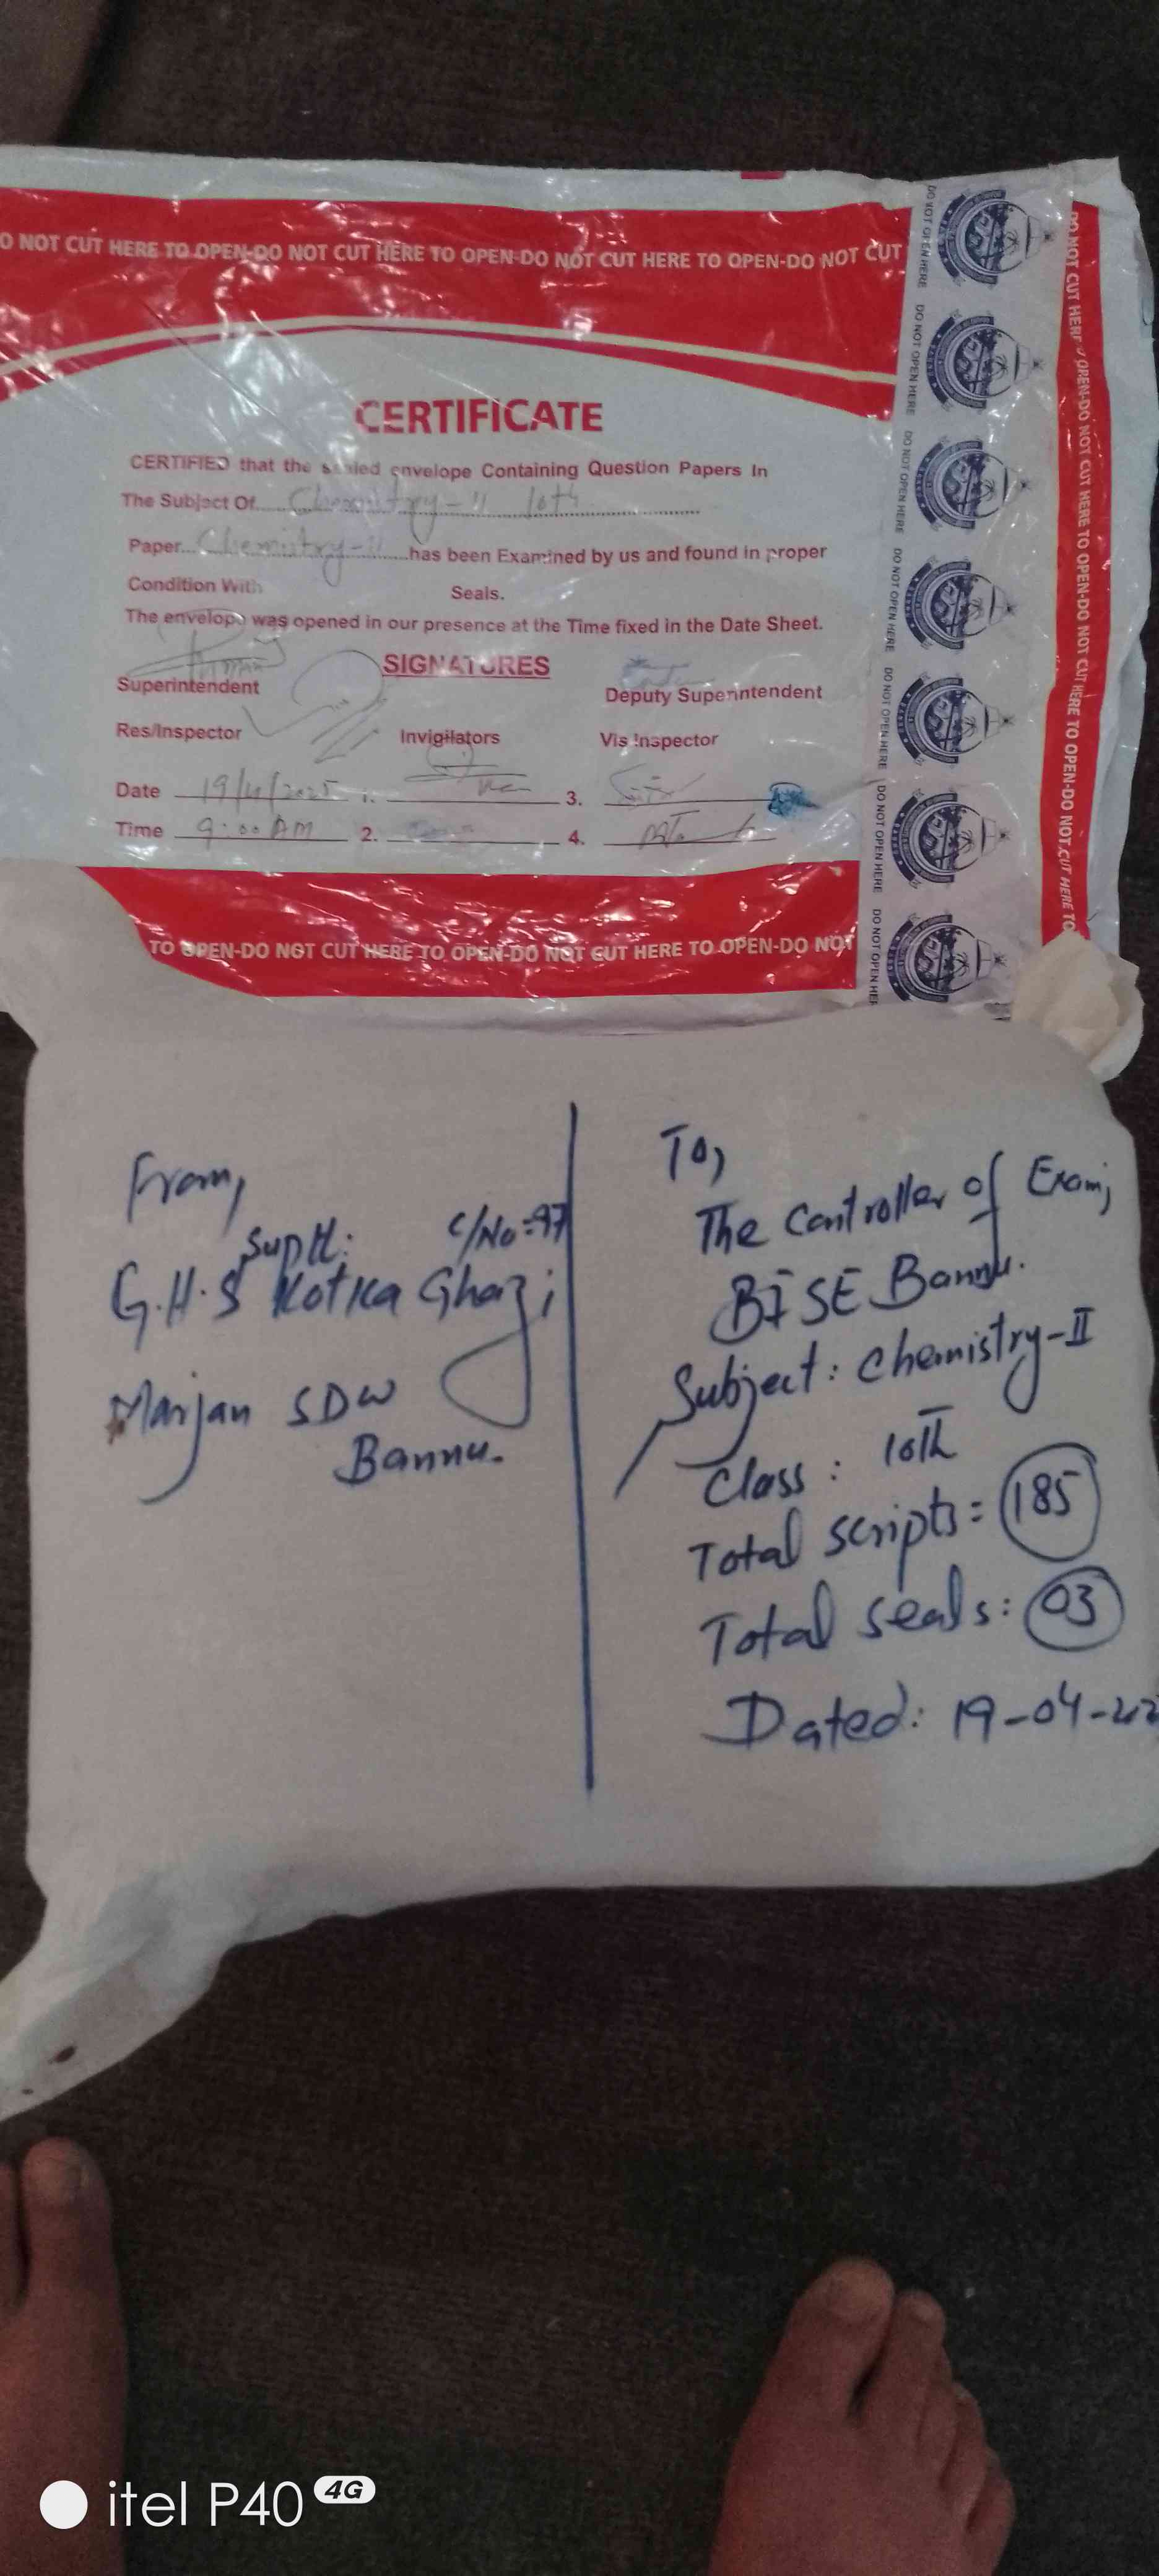 O NOT CUT HERE TO OPEN-DO NOT CUT HERE TO OPEN-DO NOT CUT HERE TO OPEN-DO NOT CUT
CERTIFICATE
CERTIFIED that the sealed envelope Containing Question Papers In
The Subject Of Chemistry-II 10th
Paper Chemistry-II has been Examined by us and found in proper
Condition With Seals.
The envelope was opened in our presence at the Time fixed in the Date Sheet.
SIGNATURES
Superintendent
Deputy Superintendent
Res/Inspector Invigilators Vis Inspector
Date 19/4/2025 1. 3.
Time 9:00 AM 2. 4.
TO OPEN-DO NOT CUT HERE TO OPEN-DO NOT CUT HERE TO OPEN-DO NOT
DO NOT OPEN HERE
DO NOT OPEN HERE
DO NOT OPEN HERE
DO NOT OPEN HERE
DO NOT OPEN HERE
DO NOT OPEN HERE
DO NOT OPEN HER
DO NOT CUT HERE TO OPEN-DO NOT CUT HERE TO OPEN-DO NOT CUT HERE TO OPEN-DO NOT CUT HERE TO
From,
Supdt: C/No=97
G.H.S Kotka Ghazi
Marjan SDW
Bannu.
To,
The Controller of Exam;
BISE Bannu.
Subject: Chemistry-II
Class: 10th
Total scripts = 185
Total seals: 03
Dated: 19-04-202
itel P40 4G